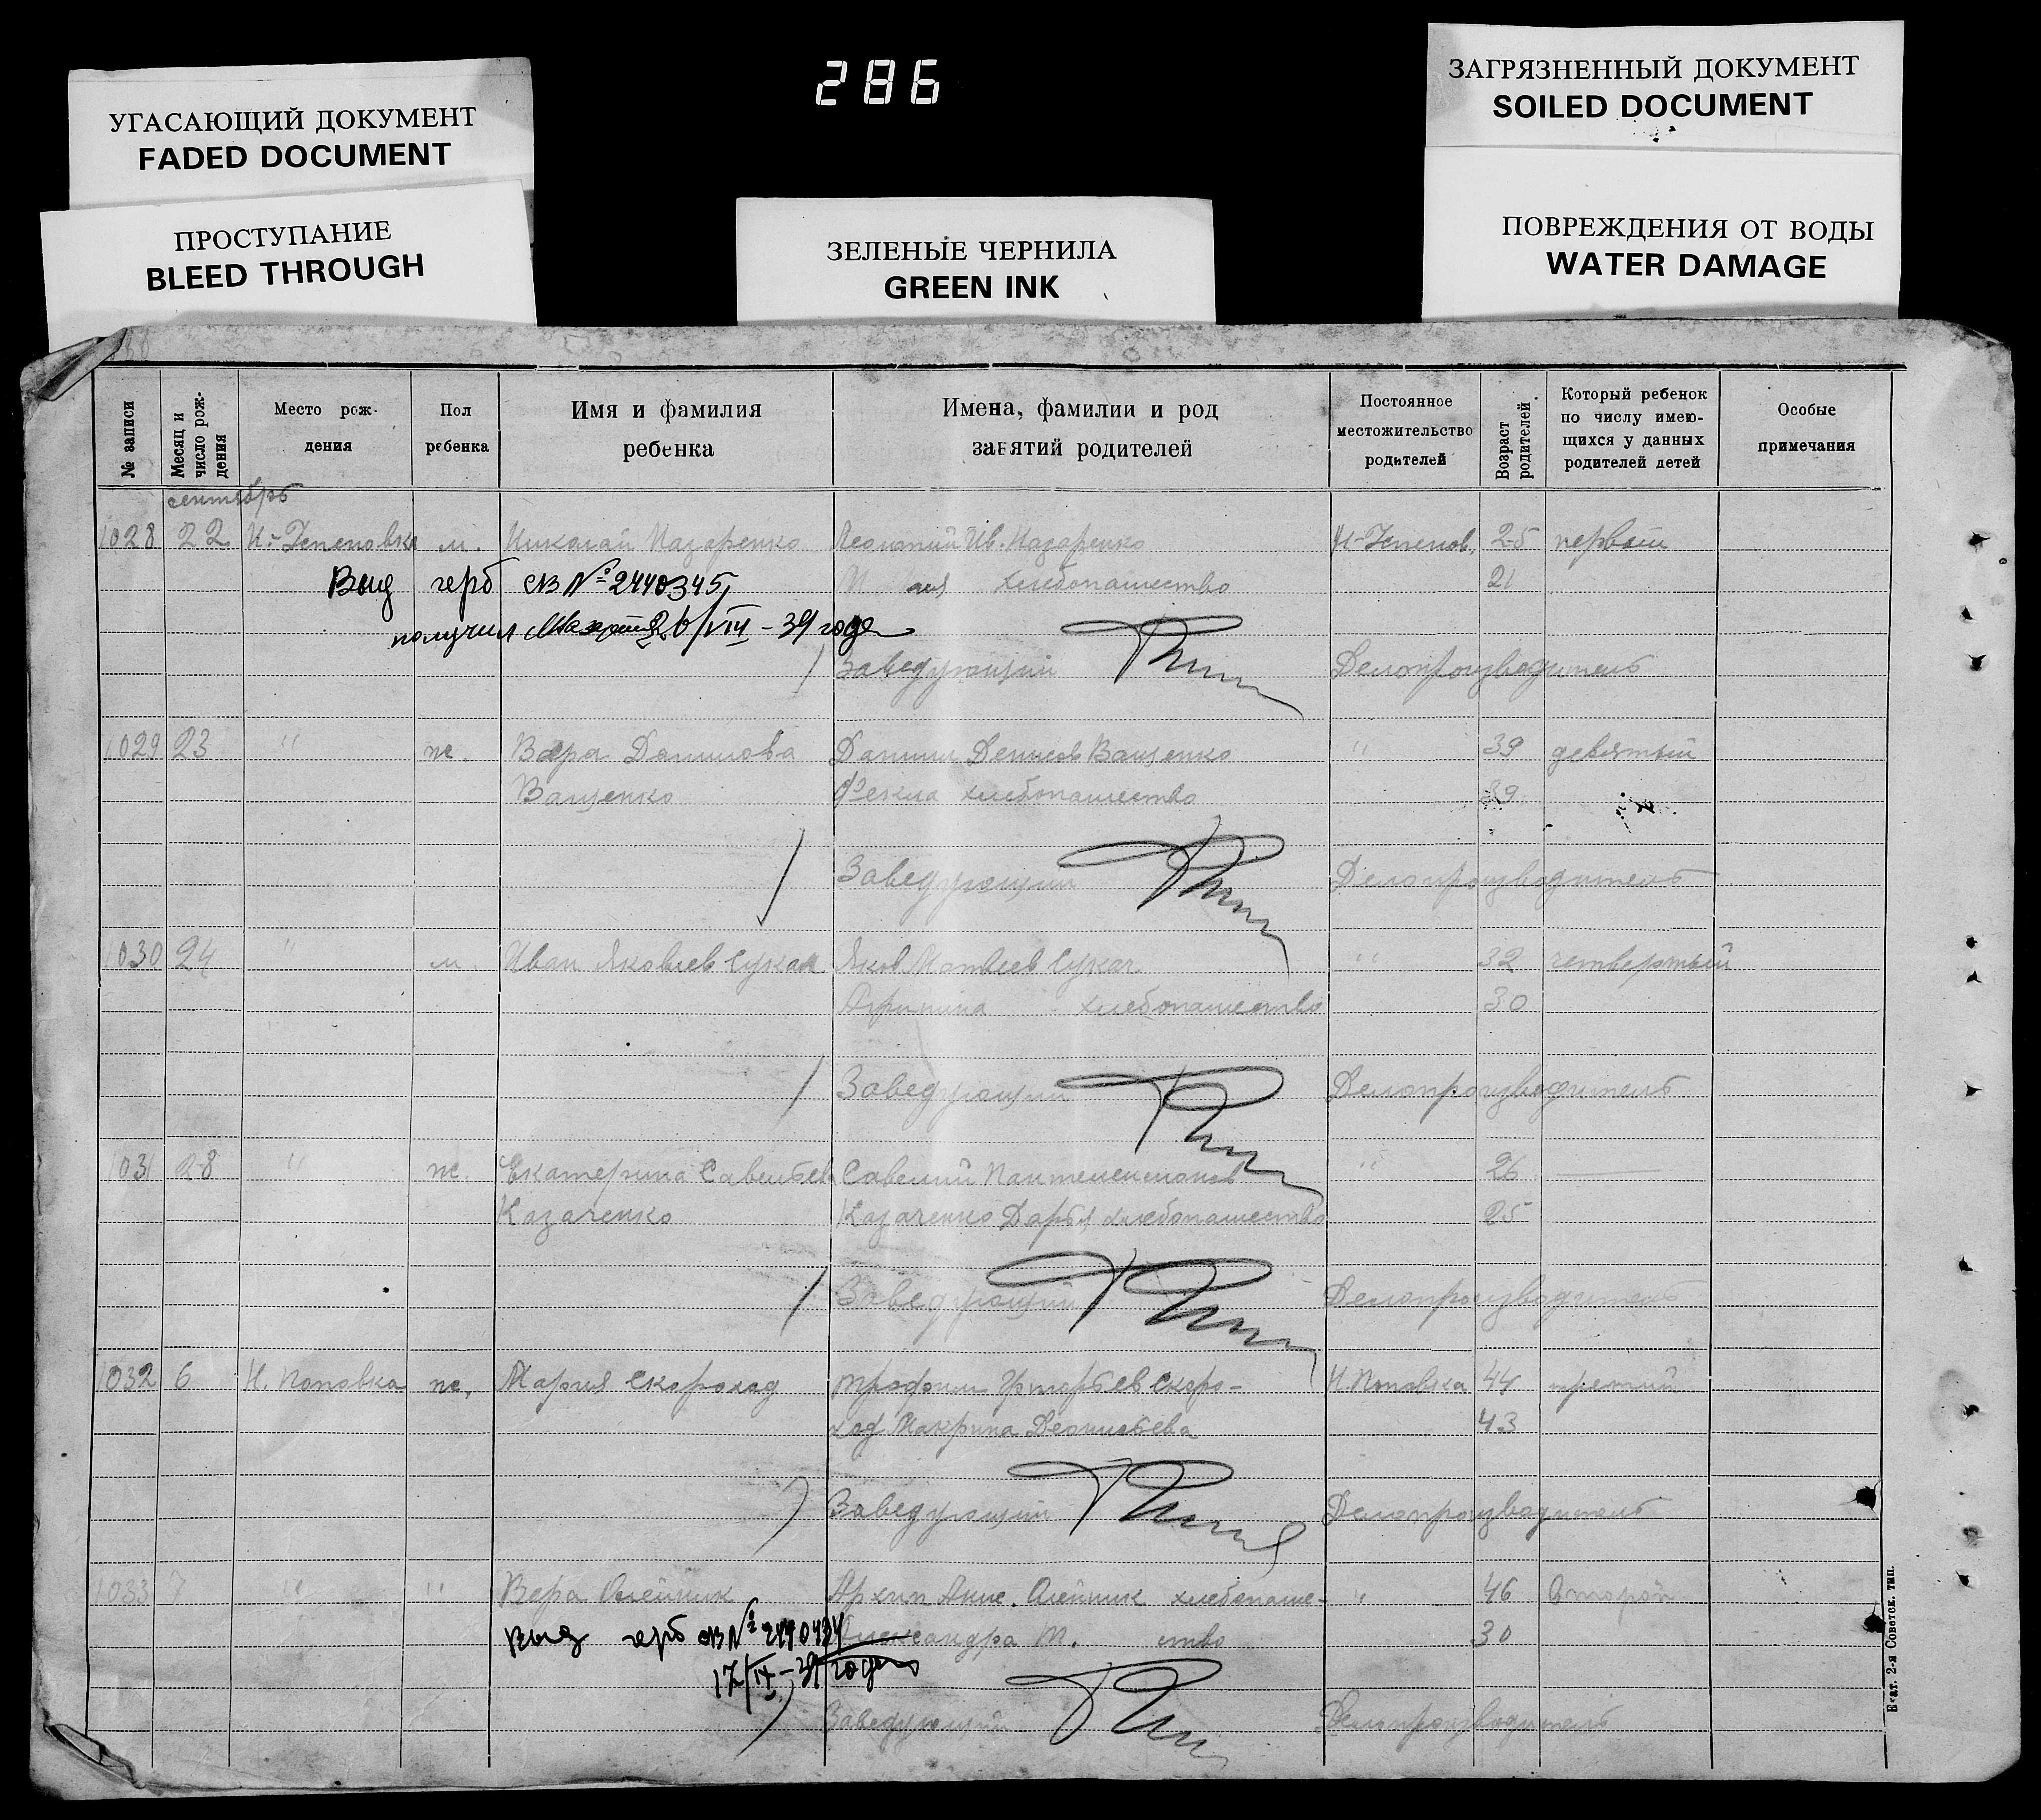 286
УГАСАЮЩИЙ ДОКУМЕНТ
FADED DOCUMENT
ПРОСТУПАНИЕ
BLEED THROUGH
ЗЕЛЕНЫЕ ЧЕРНИЛА
GREEN INK
ЗАГРЯЗНЕННЫЙ ДОКУМЕНТ
SOILED DOCUMENT
ПОВРЕЖДЕНИЯ ОТ ВОДЫ
WATER DAMAGE
№ записи
Месяц и число рож-дения
Место рож-дения
Пол ребенка
Имя и фамилия ребенка
Имена, фамилии и род занятий родителей
Постоянное местожительство родителей
Возраст родителей
Который ребенок по числу имею-щихся у данных родителей детей
Особые примечания
сентябрь
1028 22 м. Николай Назаренко Ив. Назаренко 25 первый
Выд герб СВ № 2440345 хлебопашество 21
получил 26/VIII - 39 года
Заведующий Делопроизводитель
1029 23 " ж. Вера Данилова Данил Денисов Ващенко " 39 девятый
Ващенко Фекла хлебопашество 39
Заведующий Делопроизводитель
1030 24 " м. Иван Яковлев Сукач Яков Матвеев Сукач " 32 четвертый
Агрипина хлебопашество 30
Заведующий Делопроизводитель
1031 28 " ж. Екатерина Савельева Савелий Пантелемонов " 26
Казаченко Казаченко Дарья хлебопашество 25
Заведующий Делопроизводитель
1032 6 Н. Поповка ж. Мария Скороход Трофим Григорьев Скоро- Н. Поповка 44 третий
ход Макрина Леонтьева 43
Заведующий Делопроизводитель
1033 7 " " Вера Олейник Архип Олейник хлебопаше- " 46 второй
Выд герб СВ № Александра М. ство 30
17/IX - 39 года
Заведующий Делопроизводитель
Екат. 2-я Советск. тип.